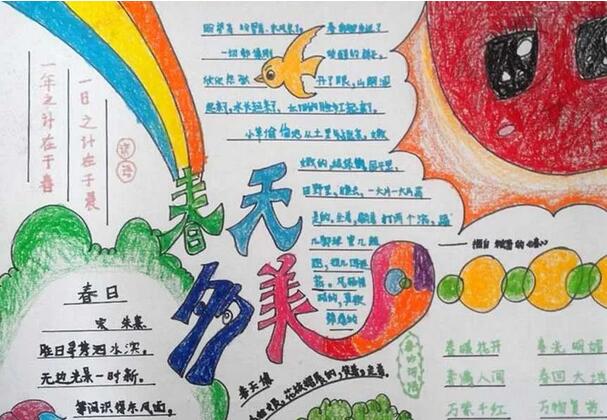 一年之计在于春
一日之计在于晨
谚语
一切都像刚
睡醒的样子,
开了眼,山朗润
起来了,水长起来了,太阳的脸红起来了。
小草偷偷地从土里钻出来,嫩
嫩的,绿绿的,园子里,
田野里,瞧去,一大片一大片满
是的,坐着,躺着 打两个滚,踢
几脚球 赛几趟
跑,捉几回迷
藏。风轻悄
悄的,草软
绵绵的
春天多美
春日
宋 朱熹
胜日寻芳泗水滨。
无边光景一时新。
等闲识得东风面,
春天像
春暖花开 春光明媚
春满人间 春回大地
万紫千红 万物复苏